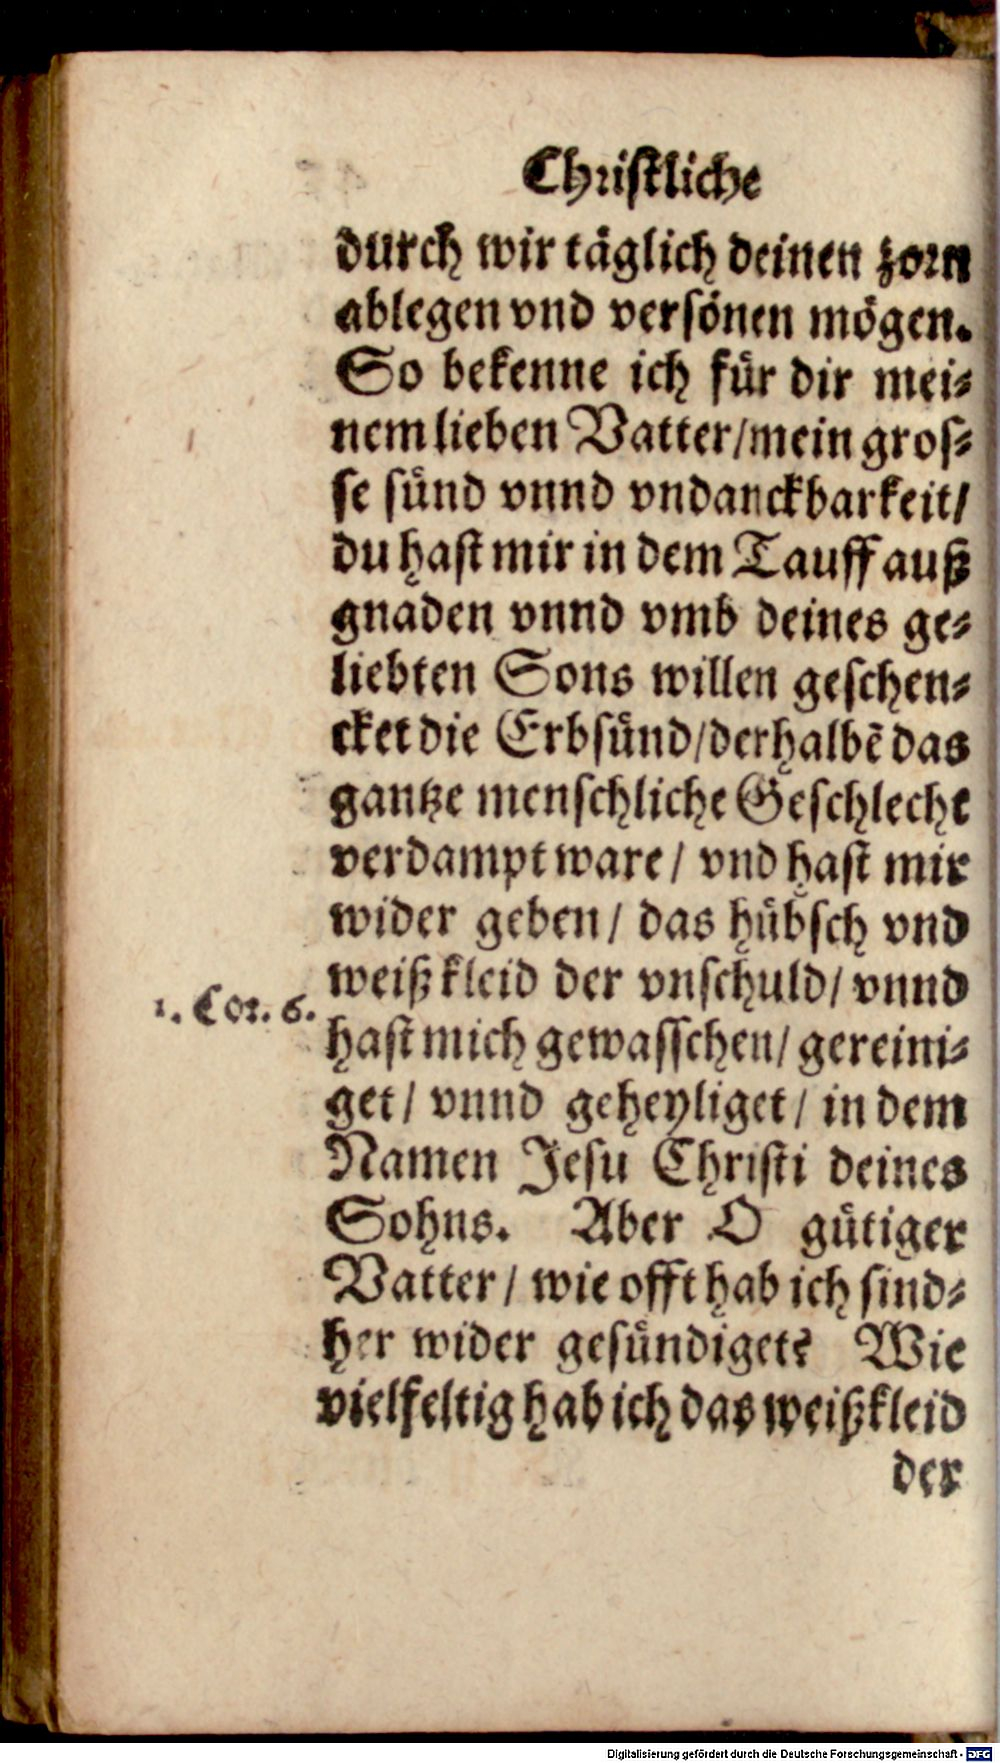 Christliche
durch wir täglich deinen zorn
ablegen vnd versönen mögen.
So bekenne ich für dir mei-
nem lieben Vatter/mein gros-
se sünd vnnd vndanckbarkeit/
du hast mir in dem Tauff auß
gnaden vnnd vmb deines ge-
liebten Sons willen geschen-
cket die Erbsünd/derhalbẽ das
gantze menschliche Geschlecht
verdampt ware/ vnd hast mir
wider geben/ das hübsch vnd
weiß kleid der vnschuld/ vnnd
1. Cor. 6.
hast mich gewasschen/ gereini-
get/ vnnd geheyliget/ in dem
Namen Jesu Christi deines
Sohns. Aber O gütiger
Vatter/ wie offt hab ich sind-
her wider gesündiget? Wie
vielfeltig hab ich das weißkleid
der
Digitalisierung gefördert durch die Deutsche Forschungsgemeinschaft - DFG